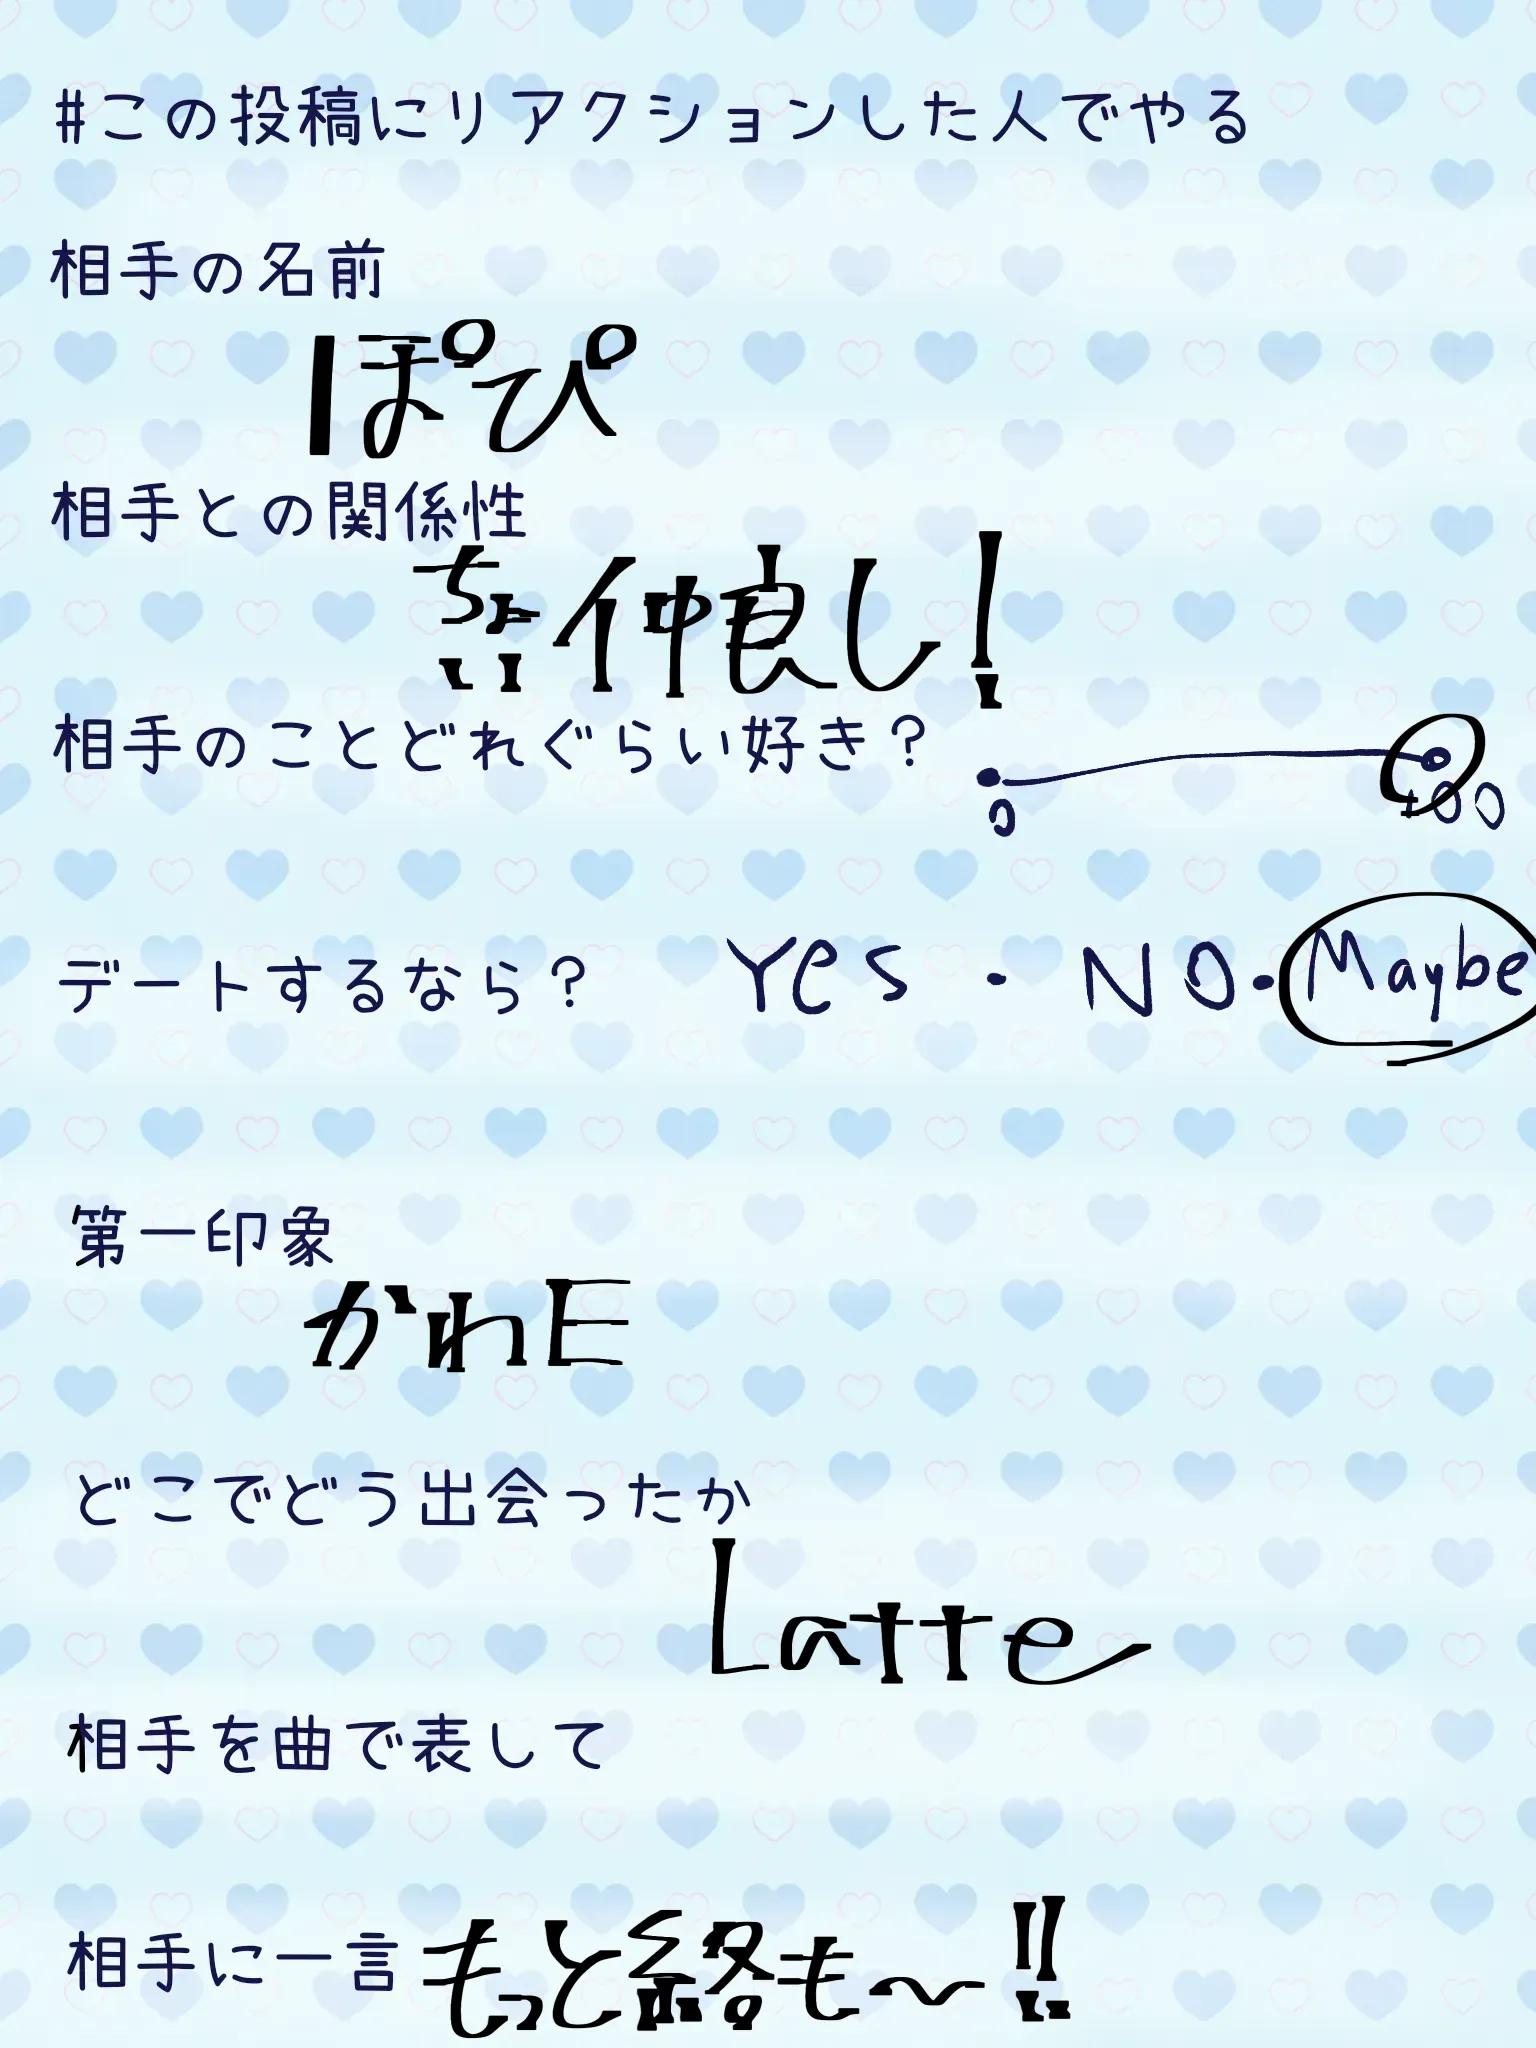 #この投稿にリアクションした人でやる
相手の名前
ぽぴ
相手との関係性
仲良し!
相手のことどれぐらい好き?
0 100
デートするなら? Yes・NO・Maybe
第一印象
かわE
どこでどう出会ったか
Latte
相手を曲で表して
相手に一言 もっと絡も〜!!